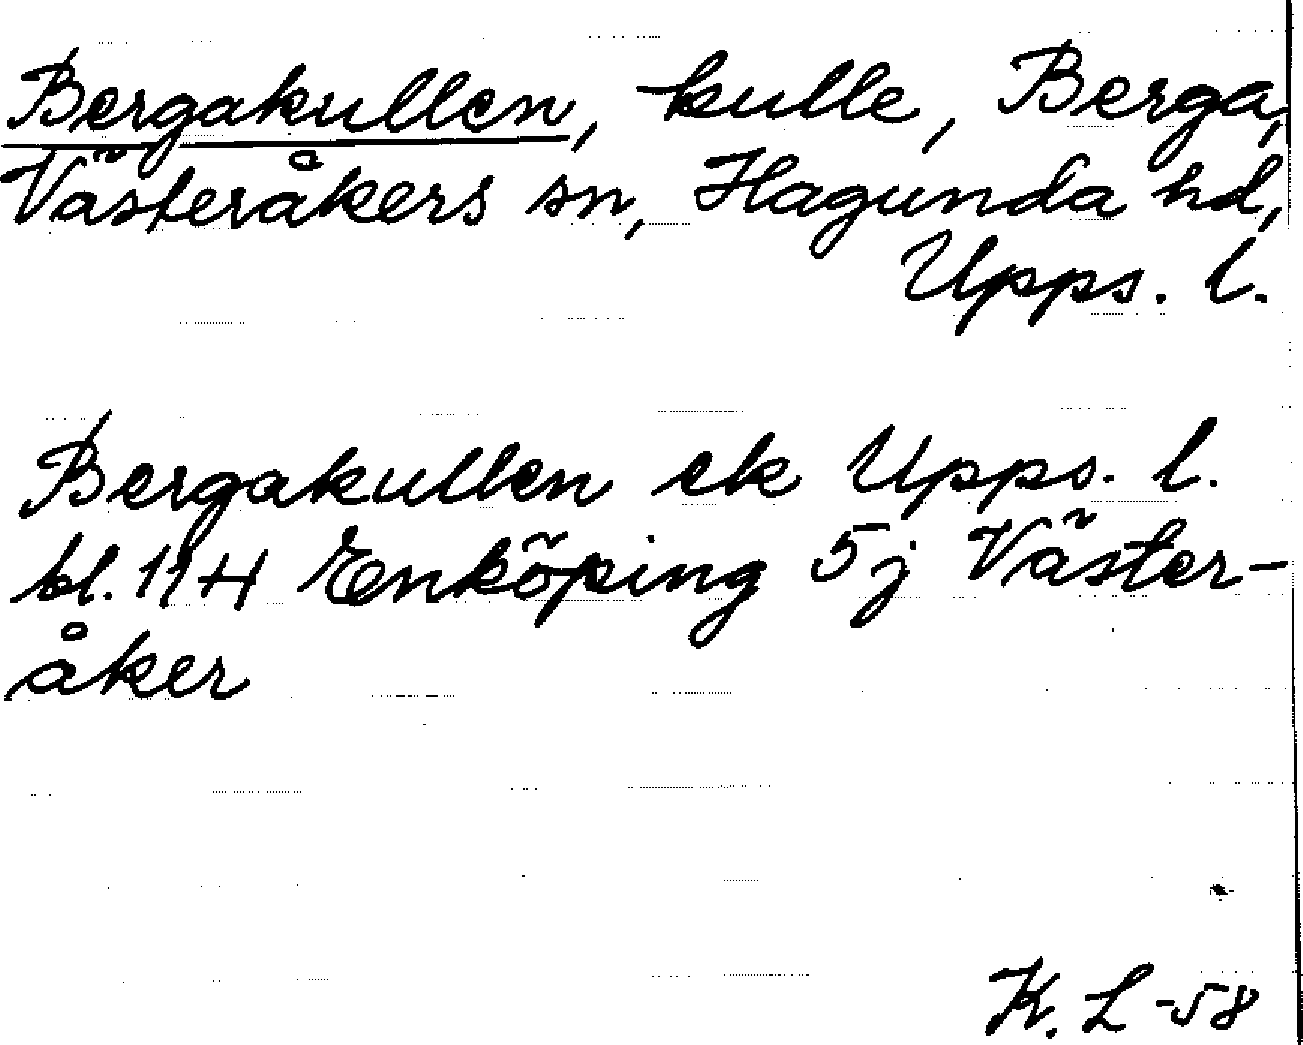 Bergakullen, kulle, Berga,
Västeråkers sn, Hagunda hd,
Upps. l.
Bergakullen ek Upps. l.
bl. 11H Enköping 5j Väster-
åker
K. L -58